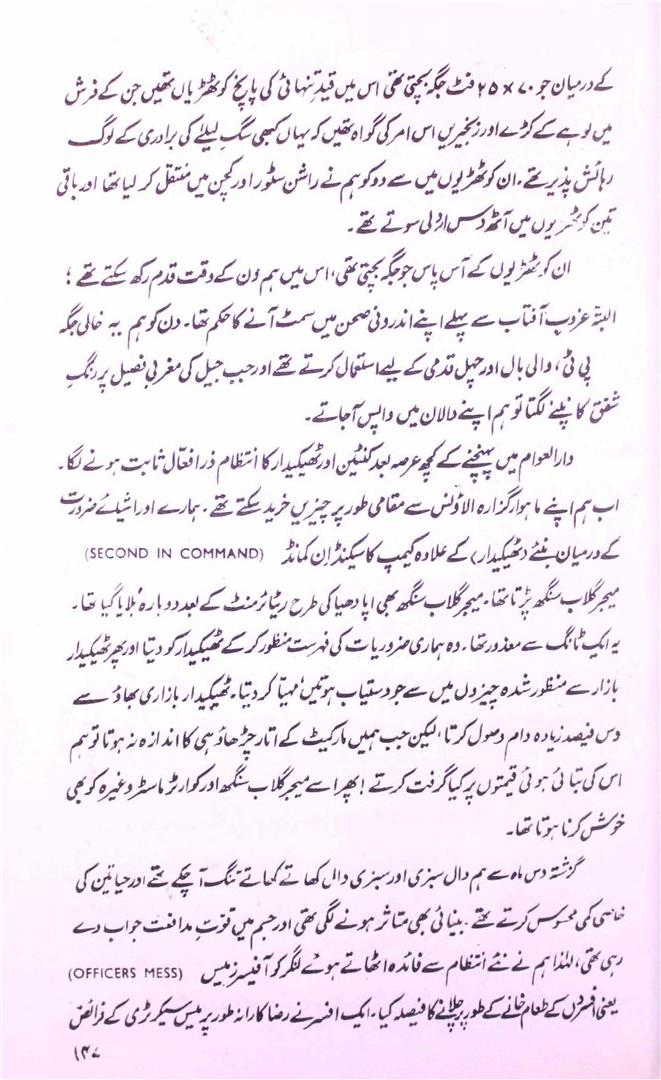 کے درمیان جو ۷۰×۲۵ فٹ جگہ بچتی تھی اس میں قیدِ تنہائی کی پانچ کوٹھڑیاں تھیں جن کے فرش
میں لوہے کے کڑے اور زنجیریں اس امر کی گواہ تھیں کہ یہاں کبھی سگِ لیلےٰ کی برادری کے لوگ
رہائش پذیر تھے۔ ان کوٹھڑیوں میں سے دو کو ہم نے راشن سٹور اور کچن میں منتقل کر لیا تھا اور باقی
تین کوٹھڑیوں میں آٹھ دس اردلی سوتے تھے۔
ان کوٹھڑیوں کے آس پاس جو جگہ بچتی تھی، اس میں ہم دن کے وقت قدم رکھ سکتے تھے ؛
البتہ غروبِ آفتاب سے پہلے اپنے اندرونی صحن میں سمٹ آنے کا حکم تھا۔ دن کو ہم یہ خالی جگہ
پی ٹی، والی بال اور چہل قدمی کے لیے استعمال کرتے تھے اور جب جیل کی مغربی فصیل پر رنگِ
شفق کانپنے لگتا تو ہم اپنے دالان میں واپس آجاتے۔
دارالعوام میں پہنچنے کے کچھ عرصہ بعد کنٹین اور ٹھیکیدار کا انتظام ذرا فعّال ثابت ہونے لگا۔
اب ہم اپنے ماہوار گزارہ الاؤنس سے مقامی طور پر چیزیں خرید سکتے تھے۔ ہمارے اور اشیائے ضرورت
کے درمیان بنئے (ٹھیکیدار) کے علاوہ کیمپ کا سیکنڈ ان کمانڈ (SECOND IN COMMAND)
میجر گلاب سنگھ پڑتا تھا۔ میجر گلاب سنگھ بھی اپادھیا کی طرح ریٹائرمنٹ کے بعد دوبارہ بُلایا گیا تھا۔
یہ ایک ٹانگ سے معذور تھا۔ وہ ہماری ضروریات کی فہرست منظور کر کے ٹھیکیدار کو دیتا اور پھر ٹھیکیدار
بازار سے منظور شدہ چیزوں میں سے جو دستیاب ہوتیں مہیّا کر دیتا۔ ٹھیکیدار بازاری بھاؤ سے
دس فیصد زیادہ دام وصول کرتا، لیکن جب ہمیں مارکیٹ کے اتار چڑھاؤ ہی کا اندازہ نہ ہوتا تو ہم
اس کی بتائی ہوئی قیمتوں پر کیا گرفت کرتے ! پھر اسے میجر گلاب سنگھ اور کوارٹر ماسٹر وغیرہ کو بھی
خوش کرنا ہوتا تھا۔
گزشتہ دس ماہ سے ہم دال سبزی اور سبزی دال کھاتے کھاتے تنگ آ چکے تھے اور حیاتین کی
خاصی کمی محسوس کرتے تھے۔ بینائی بھی متاثر ہونے لگی تھی اور جسم میں قوتِ مدافعت جواب دے
رہی تھی، لہٰذا ہم نے نئے انتظام سے فائدہ اٹھاتے ہوئے لنگر کو آفیسرز میس (OFFICERS MESS)
یعنی افسروں کے طعام خانے کے طور پر چلانے کا فیصلہ کیا۔ ایک افسر نے رضاکارانہ طور پر میس سیکرٹری کے فرائض
۱۴۷